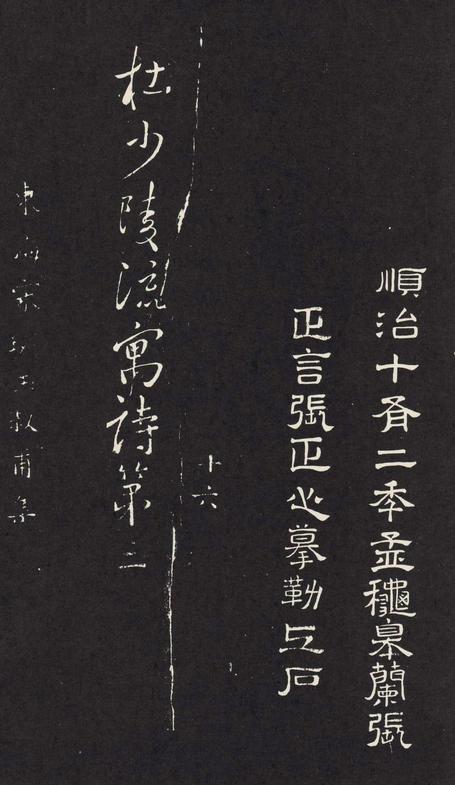 順治十有二秊孟龝皋蘭張
正言張正心摹勒上石
十六
杜少陵流寓詩第二
東海宋琬玉叔甫集